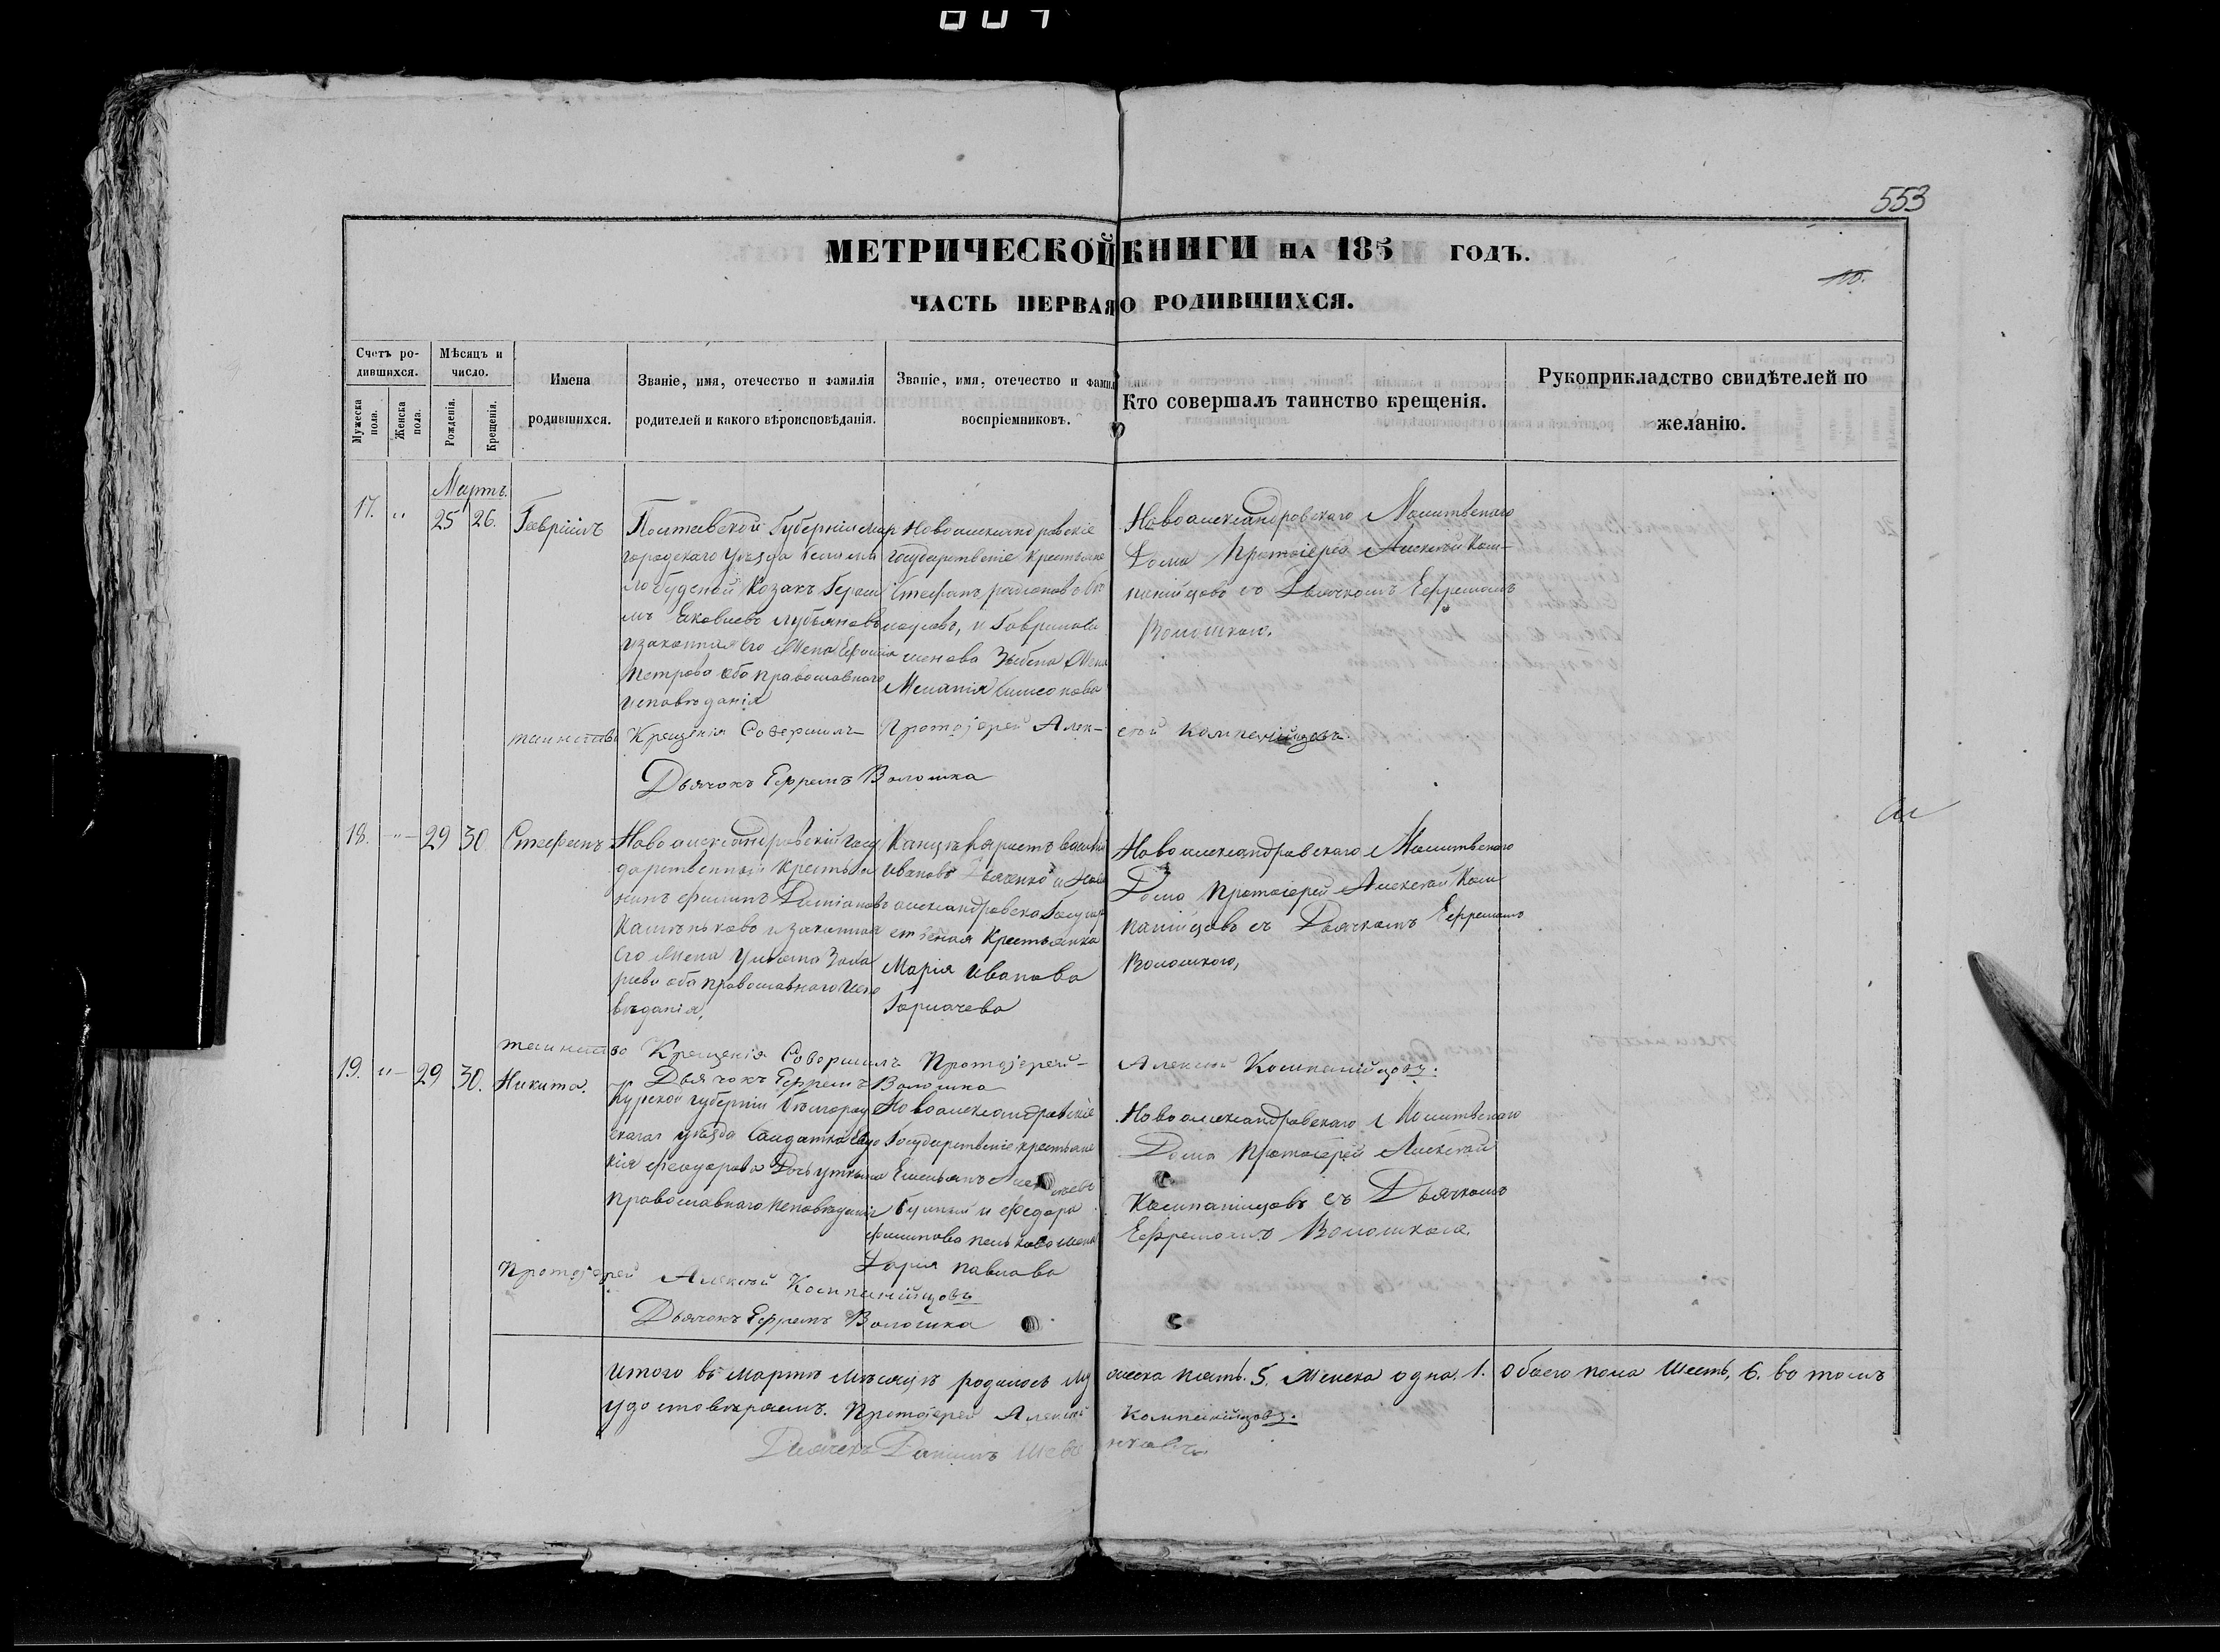 553
МЕТРИЧЕСКОЙ КНИГИ НА 185 ГОДЪ.
10.
ЧАСТЬ ПЕРВАЯ О РОДИВШИХСЯ.
Счетъ ро-
дившихся.
Мужеска пола.
Женска пола.
Мѣсяцъ и
число.
Рожденія.
Крещенія.
Имена
родившихся.
Званіе, имя, отечество и фамилія
родителей и какого вѣроисповѣданія.
Званіе, имя, отечество и фамил
воспріемниковъ.
Кто совершалъ таинство крещенія.
Рукоприкладство свидѣтелей по
желанію.
Мартъ.
17. " 25 26. Гавріилъ
Полтавской Губерніи мир
городскаго уѣзда
Козакъ Герасі
мъ Яковлевъ
изаконная его жена
Петрова оба православнаго
исповѣданія
Новоалександровскіе
государственіе крестьяне
Стефанъ радіоновъ
и Гаврила
жена
Меланія Симеонова
Новоалександровскаго Молитвенаго
Дома Протоіерей Алексѣй Ком-
панійцовъ съ Дьячкомъ Ефремомъ
Волошкою.
таинство Крещенія Совершилъ Протоіерей Алек- сѣй Компанійцовъ.
Дьячокъ Ефремъ Волошка
18. " 29 30 Стефанъ
Новоалександровскій госу
дарственный крестья
нинъ филипъ Даміановъ
изаконная
его жена Улияна Заха
риева оба православнаго испо
вѣданія.
Канцеляристъ василій
ивановъ и Ново
александровска Государ
ственая крестьянка
Марія иванова
Горлачева
Новоалександровскаго Молитвенаго
Дома протоіерей Алексѣй Ком
панійцовъ съ Дьячкомъ Ефремомъ
Волошкою,
таинство Крещенія Совершилъ Протоіерей- Алексѣй Компанійцовъ.
Дьячокъ Ефремъ Волошка
19. " 29 30. Никита.
Курской губерніи бѣлгород
скаго уѣзда Солдатка Евдо
кія феодорова Дочь
православнаго исповѣданія
Новоалександровскіе
Государственіе крестьяне
Емельянъ
и федора
филипова жена
Дарія павлова
Новоалександровскаго Молитвенаго
Дома протоіерей Алексѣй
Компанійцовъ съ Дьячкомъ
Ефремомъ Волошкою.
Протоіерей Алексѣй Компанійцовъ
Дьячокъ Ефремъ Волошка
итого въ мартѣ мѣсяцѣ родилось му жеска пять. 5. Женска одна. 1. Обоего пола шесть, 6. во томъ
удостовѣряемъ. Протоіерей Алексѣй Компанійцовъ.
Дьячекъ Даніилъ